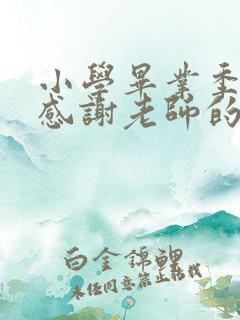 小學畢業季
感謝老師的
白金錦鯉
未经同意禁止转载